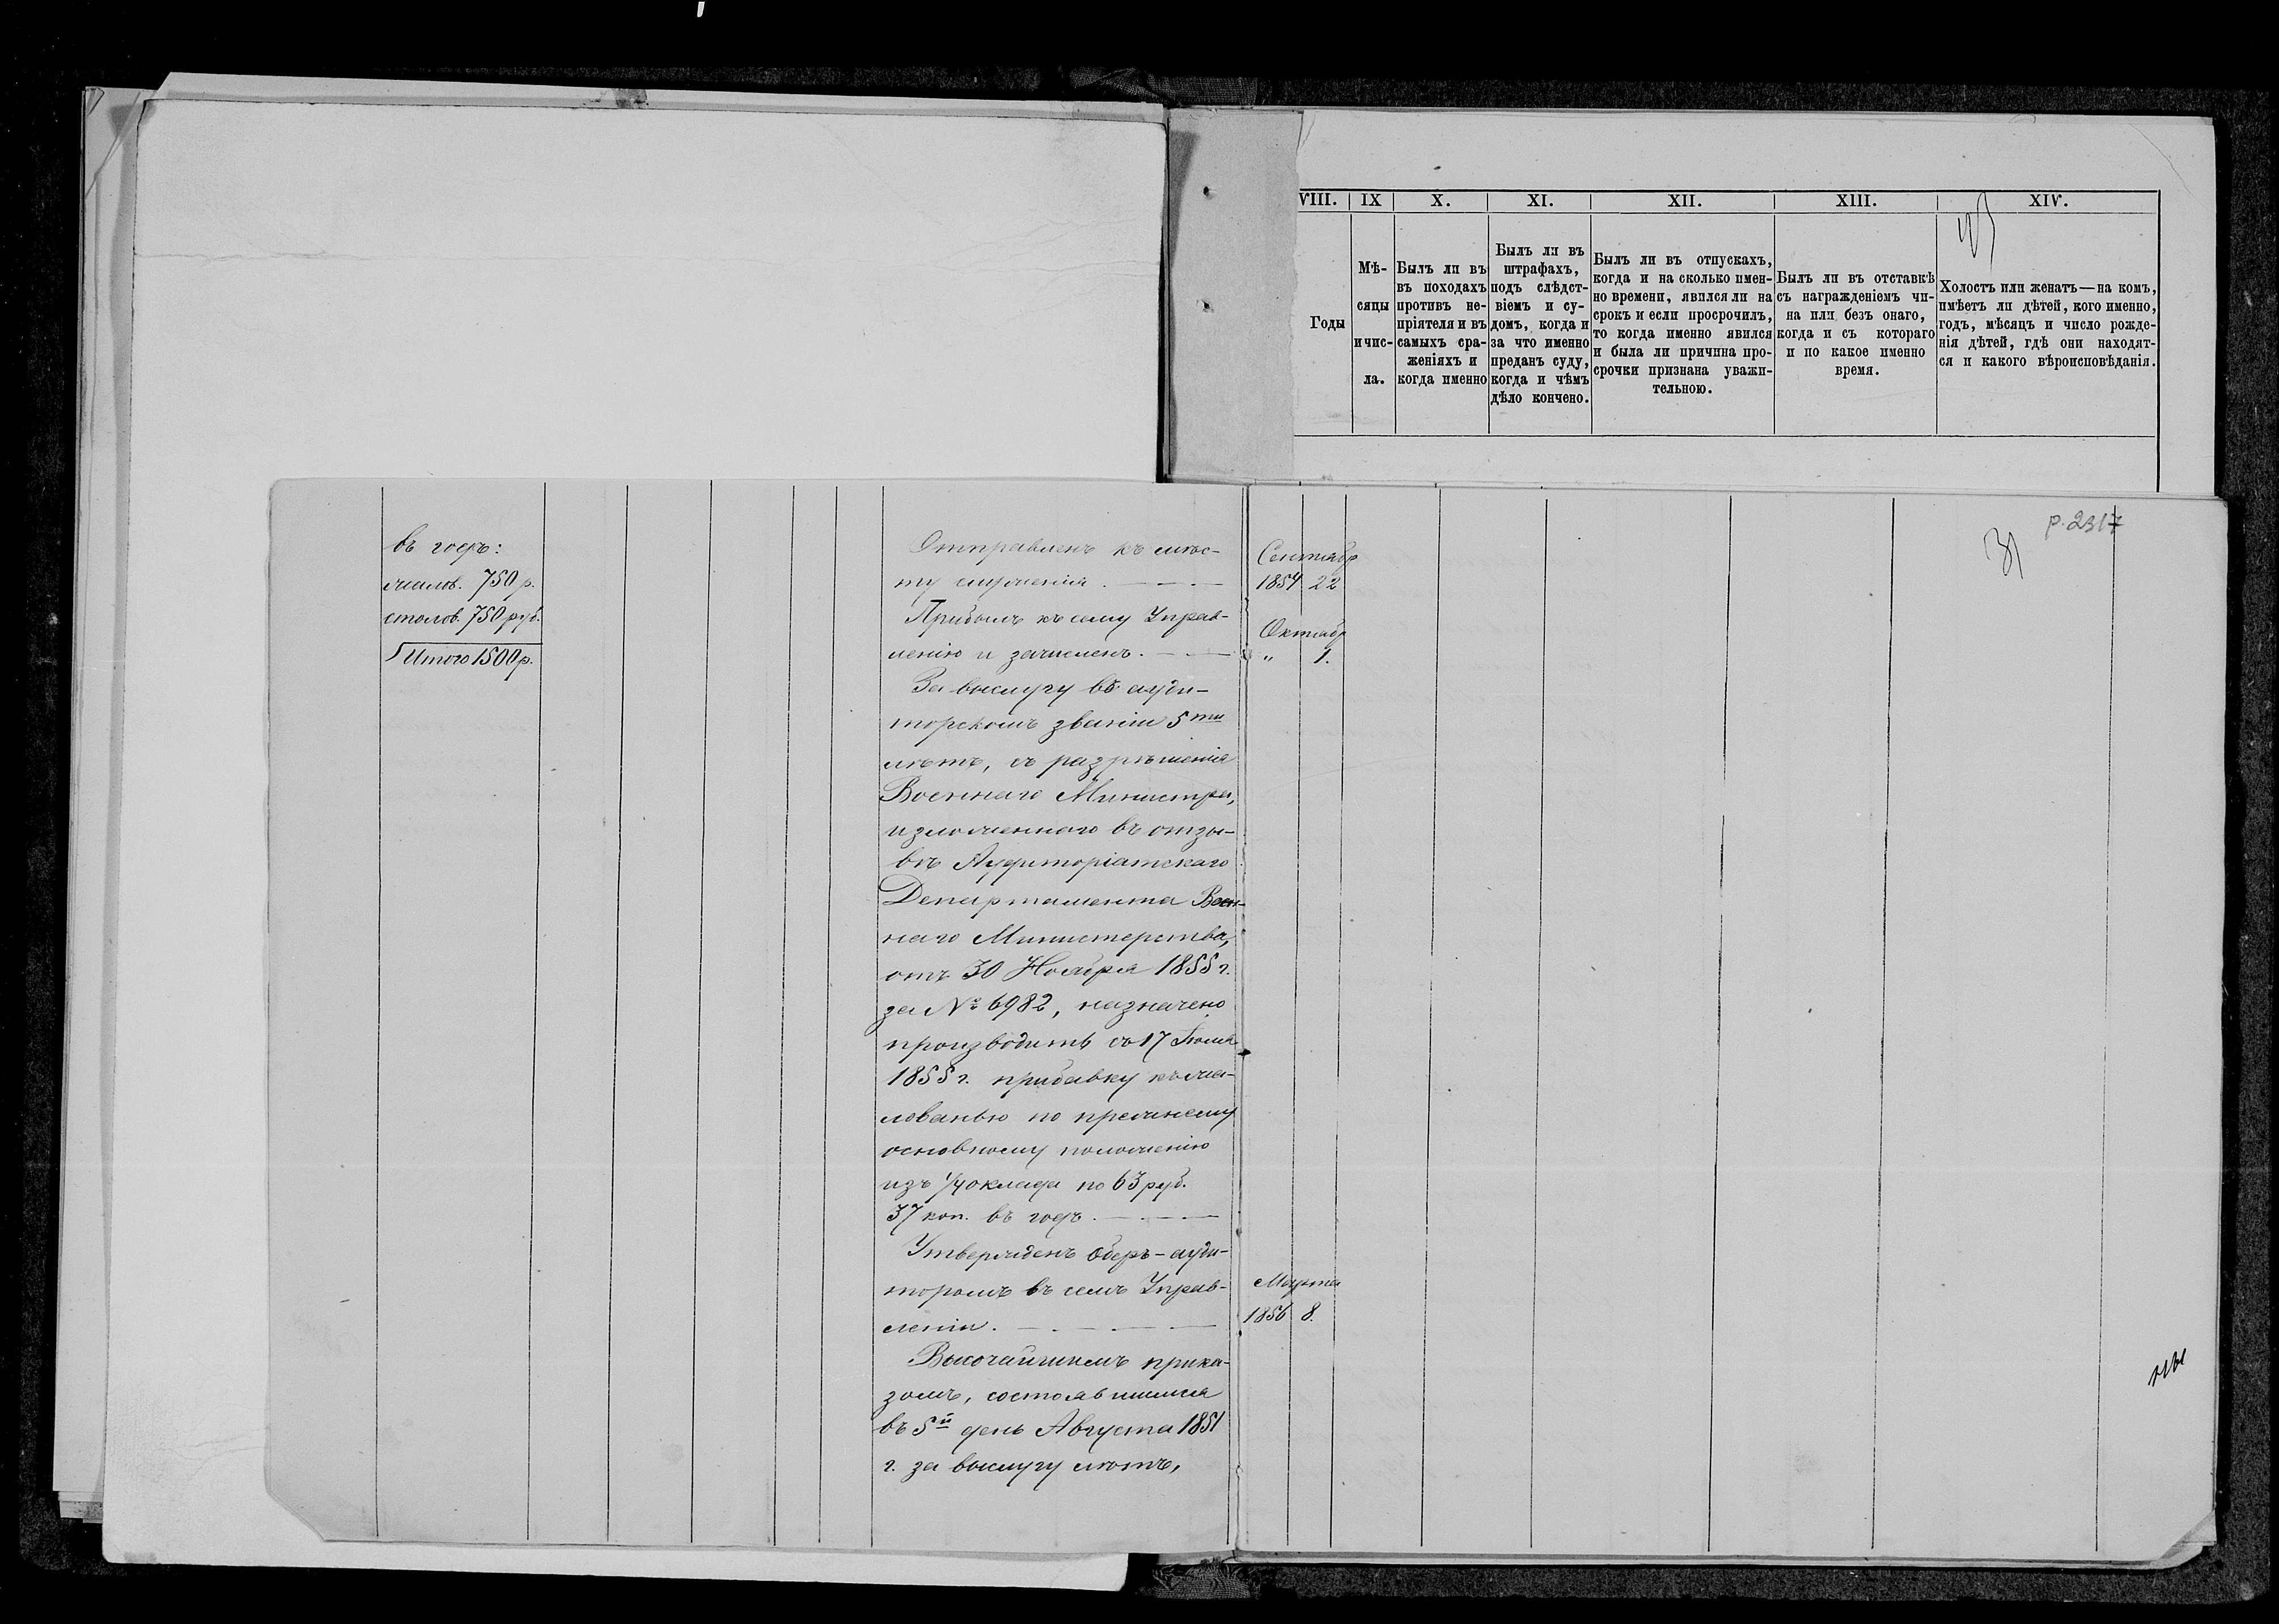 VIII. IX X. XI. XII. XIII. XIV.
Годы
Мѣ-
сяцы
и чис-
ла.
Былъ ли въ
въ походахъ
противъ не-
пріятеля и въ
самыхъ сра-
женіяхъ и
когда именно
Былъ ли въ
штрафахъ,
подъ слѣдст-
віемъ и су-
домъ, когда и
за что именно
преданъ суду,
когда и чѣмъ
дѣло кончено.
Былъ ли въ отпускахъ,
когда и на сколько имен-
но времени, явился ли на
срокъ и если просрочилъ,
то когда именно явился
и была ли причина про-
срочки признана уважи-
тельною.
Былъ ли въ отставкѣ
съ награжденіемъ чи-
на или безъ онаго,
когда и съ котораго
и по какое именно
время.
Холостъ или женатъ—на комъ,
имѣетъ ли дѣтей, кого именно,
годъ, мѣсяцъ и число рожде-
нія дѣтей, гдѣ они находят-
ся и какого вѣроисповѣданія.
р. 2317
31
въ годъ:
жалов. 750 р.
столов. 750 руб.
Итого 1500 р.
Отправленъ къ мѣс-
ту служенія.
Сентябр
1854 22
Прибылъ къ сему Управ-
ленію и зачисленъ.
Октябр
" 1.
За выслугу въ ауди-
торскомъ званіи 5ти
лѣтъ, съ разрѣшенія
Военнаго Министра,
изложеннаго въ отзы-
вѣ Аудиторіатскаго
Департамента Воен-
наго Министерства,
отъ 30 Ноября 1855 г.
за № 6982, назначено
производить съ 17 Іюля
1855 г. прибавку къ жа-
лованью по прежнему
основному положенію
изъ 1/4 оклада по 63 руб.
37 коп. въ годъ.
Утвержденъ Оберъ-ауди-
торомъ въ семъ Управ-
леніи.
Марта
1856 8.
Высочайшимъ прика-
зомъ, состоявшимся
въ 5й день Августа 1851
г. за выслугу лѣтъ,